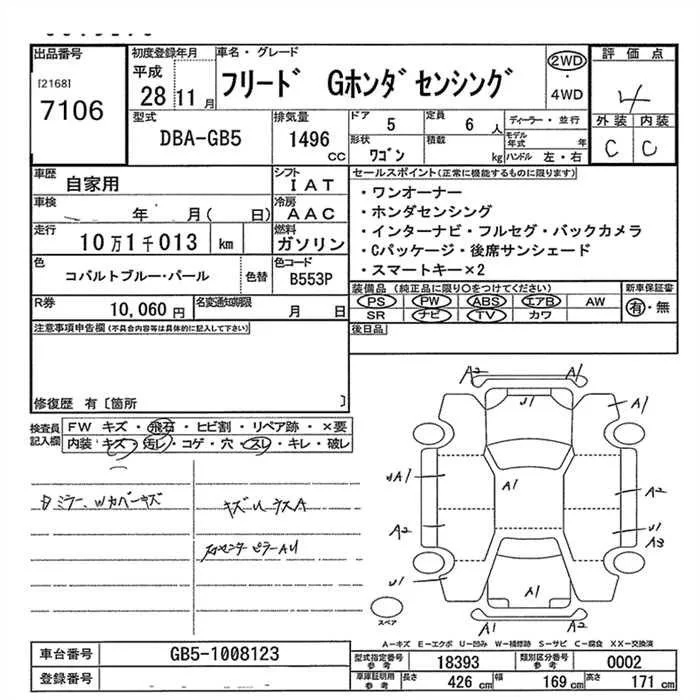 出品番号
[2168]
7106
初度登録年月
平成
28 11月
車名・グレード
フリード Gホンダセンシング
2WD
・
4WD
評価点
4
外装 内装
C C
型式
DBA-GB5
排気量
1496
CC
ドア
5
定員
6 人
ディーラー・並行
形状
ワゴン
積載
kg
モデル
年式 年
ハンドル 左・右
車歴
自家用
シフト
IAT
車検
年 月( 日)
冷房
AAC
走行
10万1千013 km
燃料
ガソリン
色
コバルトブルー・パール
色替
色コード
B553P
R券
10,060円
名変通知期限
月 日
セールスポイント(正常に機能するものに限ります)
・ワンオーナー
・ホンダセンシング
・インターナビ・フルセグ・バックカメラ
・Cパッケージ・後席サンシェード
・スマートキー×2
装備品 (純正品に限り○をつけてください)
新車保証書
PS PW ABS エアB AW
SR ナビ TV カワ
有・無
後日品
注意事項申告欄(不具合内容等は具体的に記入して下さい)
修復歴 有[箇所 ]
検査員
記入欄
FW キズ・飛石・ヒビ割・リペア跡・×要
内装・キズ・汚レ・コゲ・穴・スレ・キレ・破レ
ミラー、Wカバーキズ
キズ
ピラーAU
A2
A1
U1
A1
A1
A1
A2
A2
U1
A3
U1
A1
A1
A2
スペア
A-キズ E-エクボ U-凹み W-補修跡 S-サビ C-腐食 XX-交換済
車台番号
GB5-1008123
登録番号
型式指定番号
参考
18393
類別区分番号
参考
0002
車庫証明用
参考
長さ
426 cm
幅
169 cm
高さ
171 cm